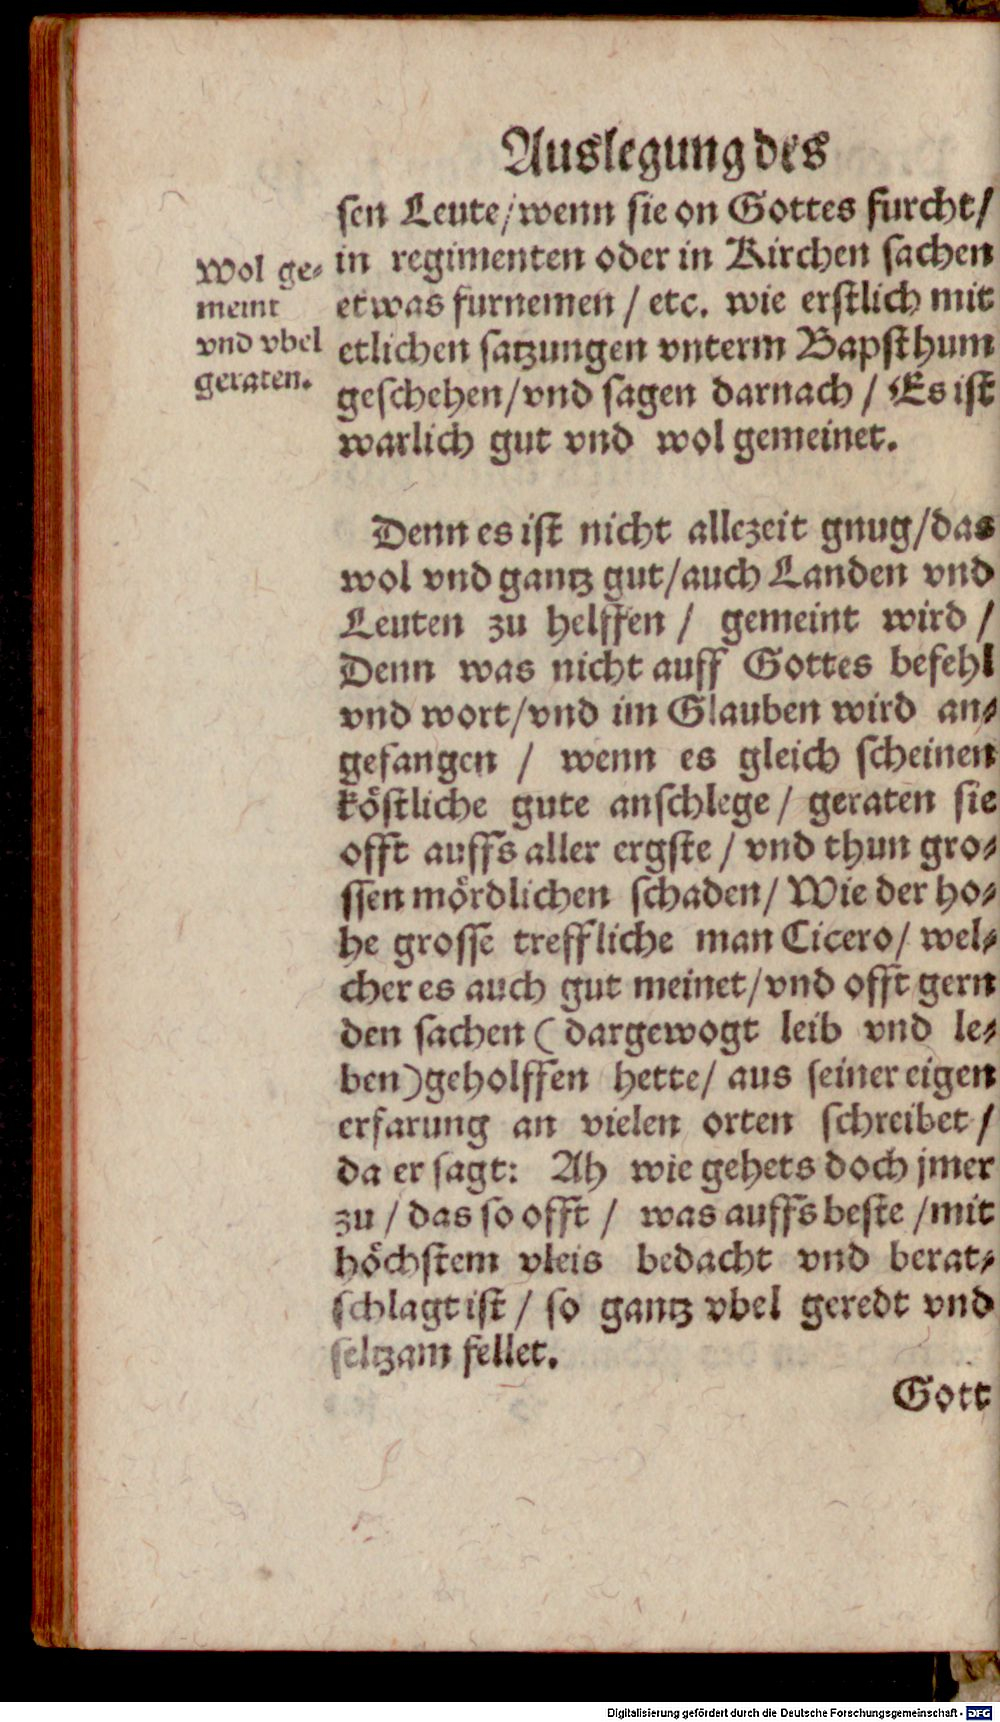 Auslegung des
sen Leute/ wenn sie on Gottes furcht/
in regimenten oder in Kirchen sachen
etwas furnemen / etc. wie erstlich mit
etlichen satzungen vnterm Bapsthum
geschehen/ vnd sagen darnach / Es ist
warlich gut vnd wol gemeinet.
Wol ge-
meint
vnd vbel
geraten.
Denn es ist nicht allezeit gnug/das
wol vnd gantz gut/auch Landen vnd
Leuten zu helffen / gemeint wird /
Denn was nicht auff Gottes befehl
vnd wort/vnd im Glauben wird an-
gefangen / wenn es gleich scheinen
köstliche gute anschlege / geraten sie
offt auffs aller ergste / vnd thun gro-
ssen mördlichen schaden/ Wie der ho-
he grosse treffliche man Cicero/ wel-
cher es auch gut meinet/vnd offt gern
den sachen (dargewogt leib vnd le-
ben)geholffen hette/ aus seiner eigen
erfarung an vielen orten schreibet /
da er sagt: Ah wie gehets doch jmer
zu / das so offt / was auffs beste /mit
höchstem vleis bedacht vnd berat-
schlagt ist / so gantz vbel geredt vnd
seltzam fellet.
Gott
Digitalisierung gefördert durch die Deutsche Forschungsgemeinschaft - DFG